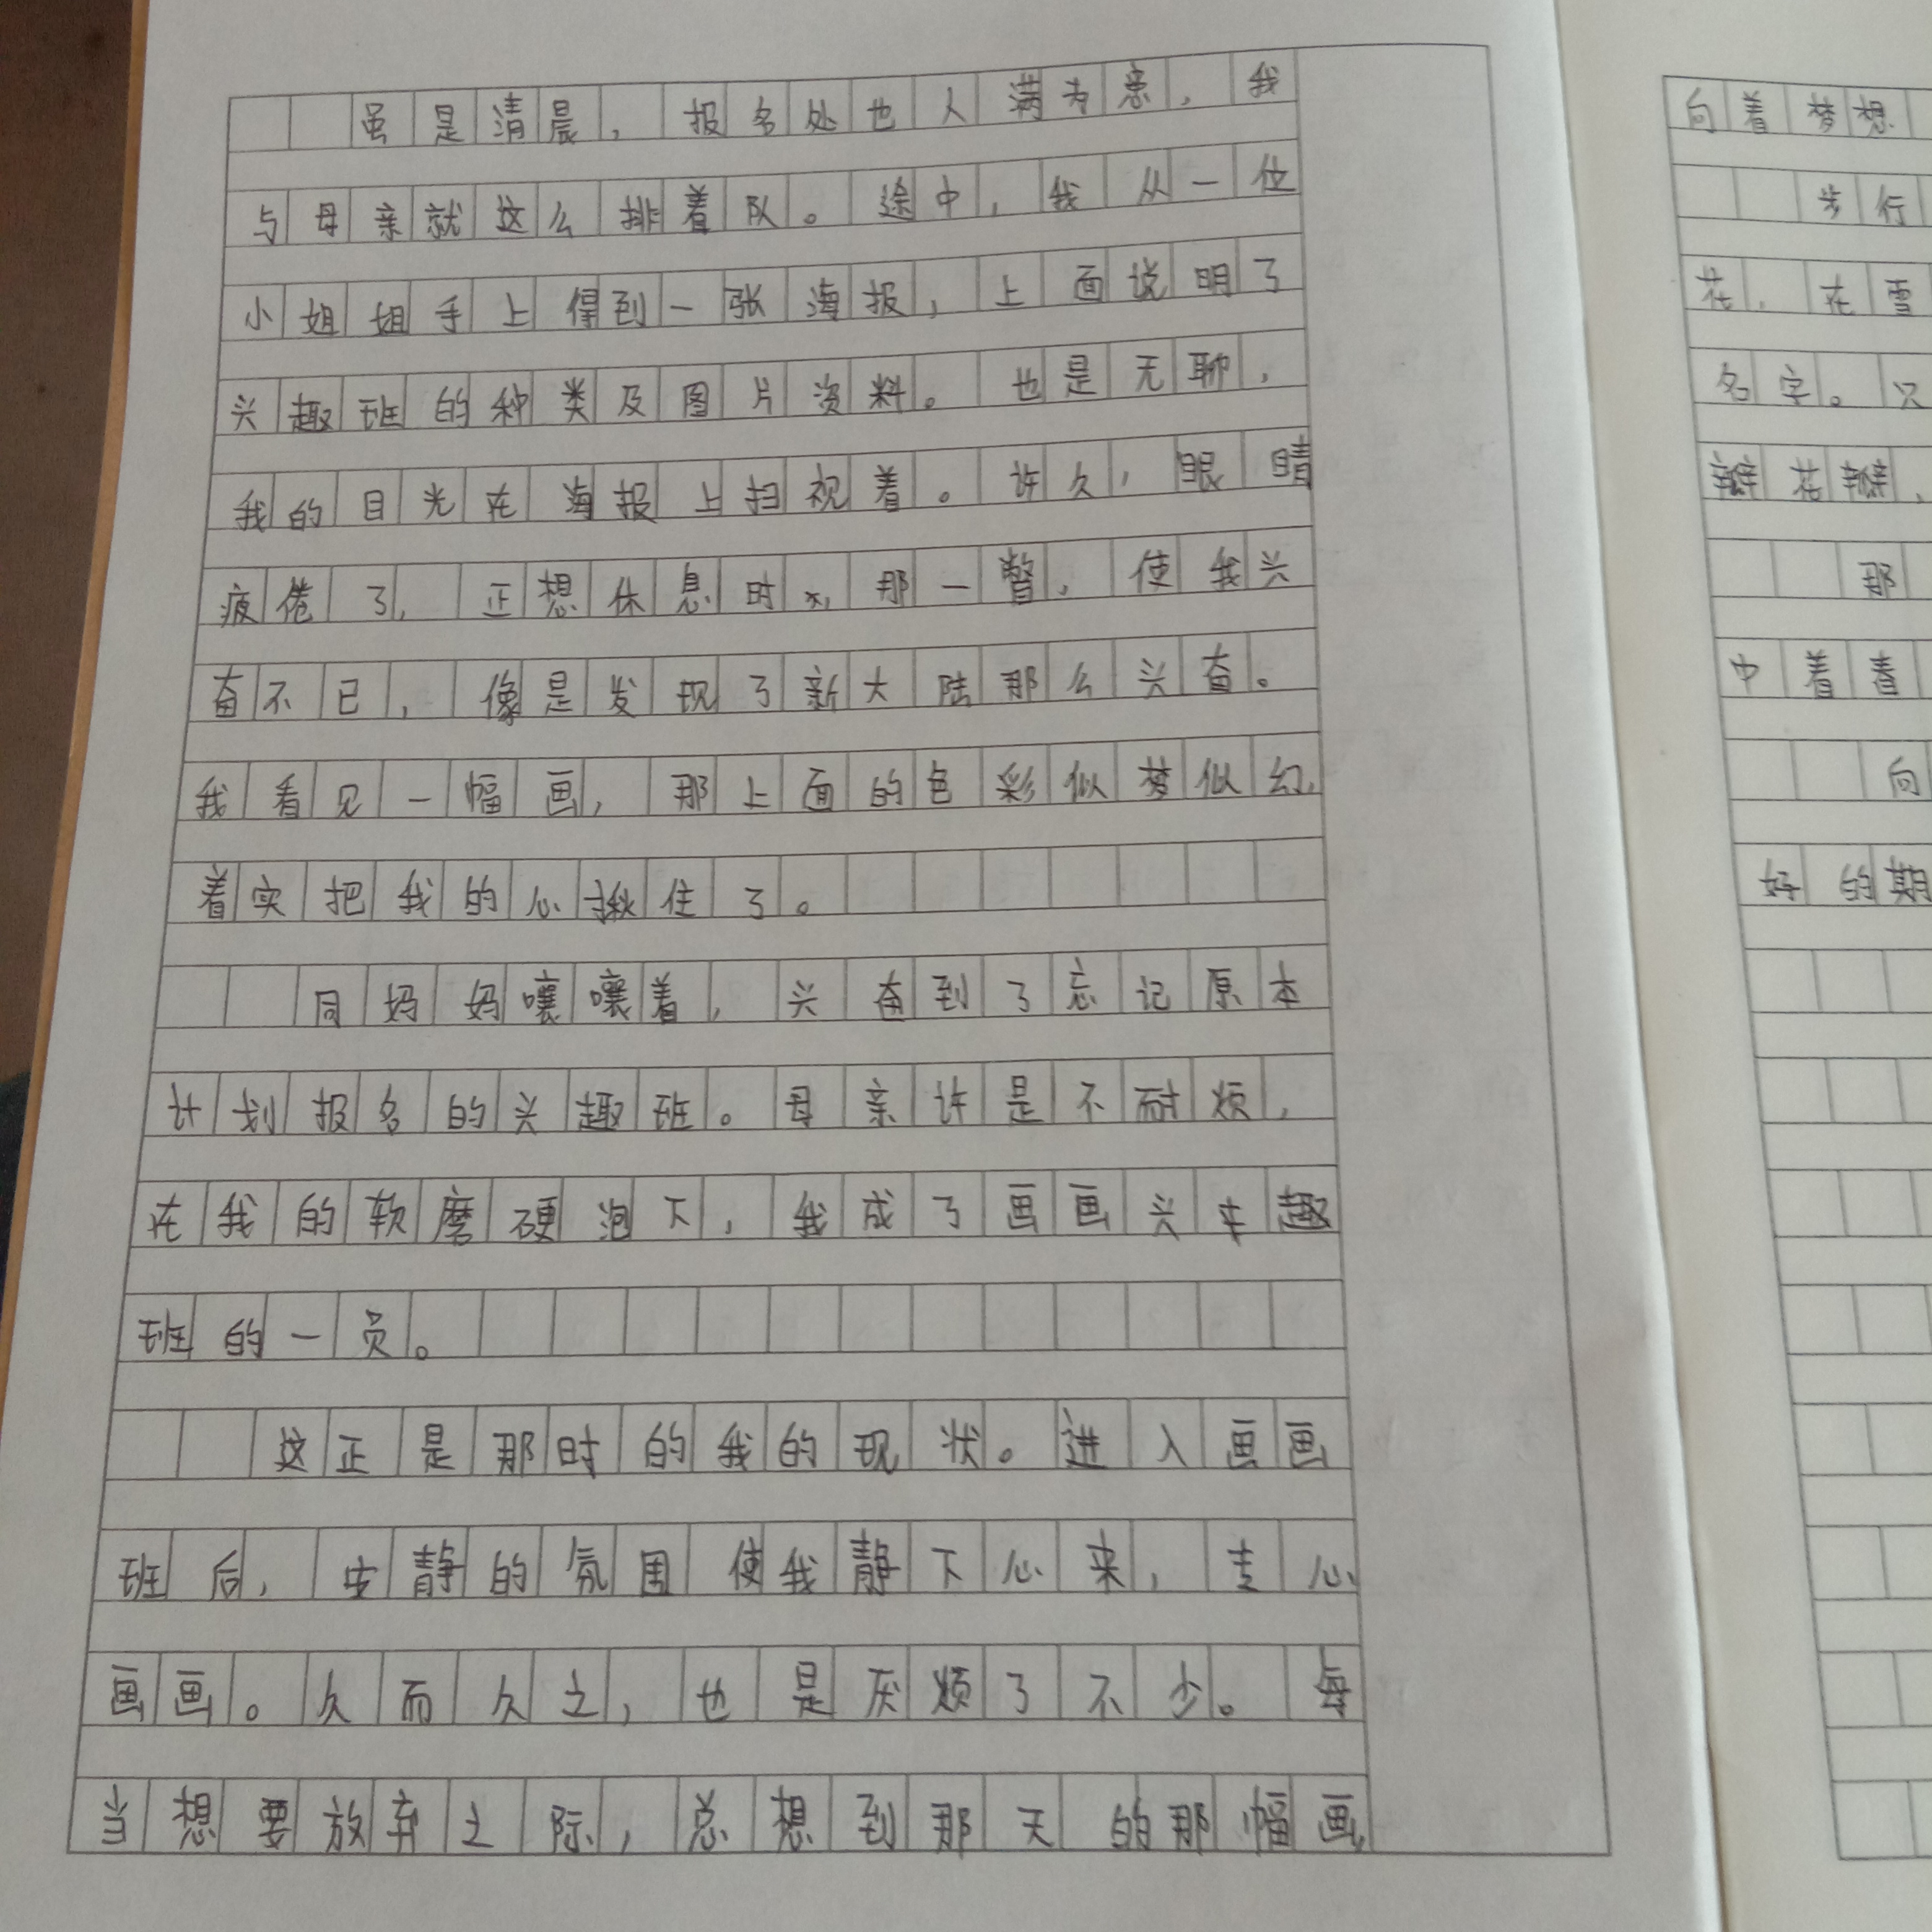 虽是清晨，报名处也人满为患，我
与母亲就这么排着队。途中，我从一位
小姐姐手上得到一张海报，上面说明了
兴趣班的种类及图片资料。也是无聊，
我的目光在海报上扫视着。许久，眼睛
疲倦了，正想休息时，那一瞥，使我兴
奋不已，像是发现了新大陆那么兴奋。
我看见一幅画，那上面的色彩似梦似幻，
着实把我的心揪住了。
同妈妈嚷嚷着，兴奋到了忘记原本
计划报名的兴趣班。母亲许是不耐烦，
在我的软磨硬泡下，我成了画画兴趣
班的一员。
这正是那时的我的现状。进入画画
班后，安静的氛围使我静下心来，走心
画画。久而久之，也是厌烦了不少。每
当想要放弃之际，总想到那天的那幅画
向着梦想
步行
花，在雪
名字。只
瓣花瓣，
那
中着春
向
好的期